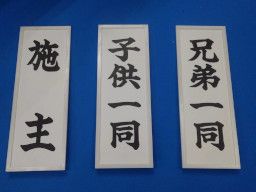 兄弟一同
子供一同
施主